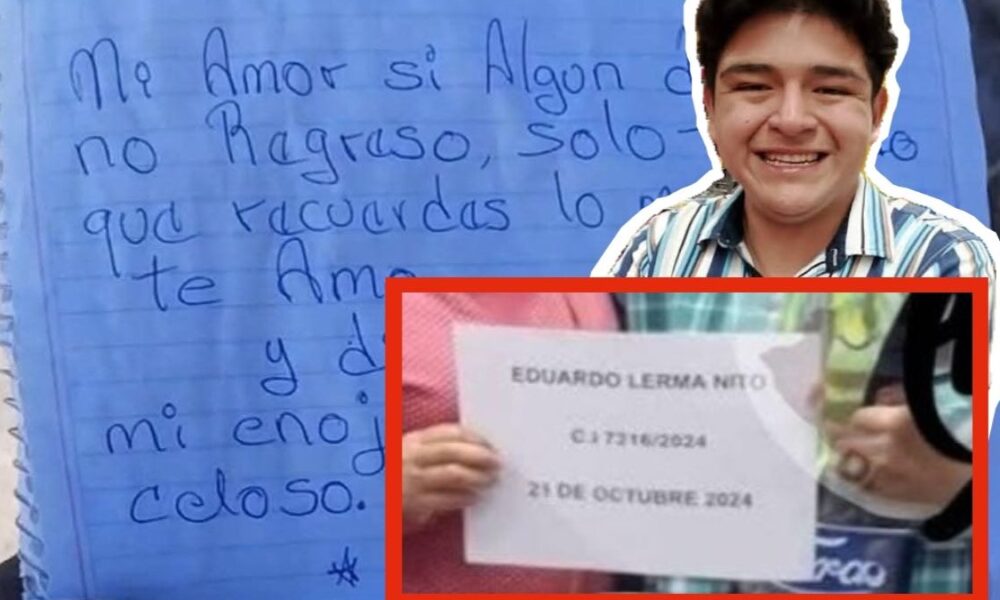 Mi Amor si Algun
no Regreso, solo
que recuerdas lo
te Amo
y
mi
celoso.
EDUARDO LERMA NITO
C.I 7316/2024
21 DE OCTUBRE 2024